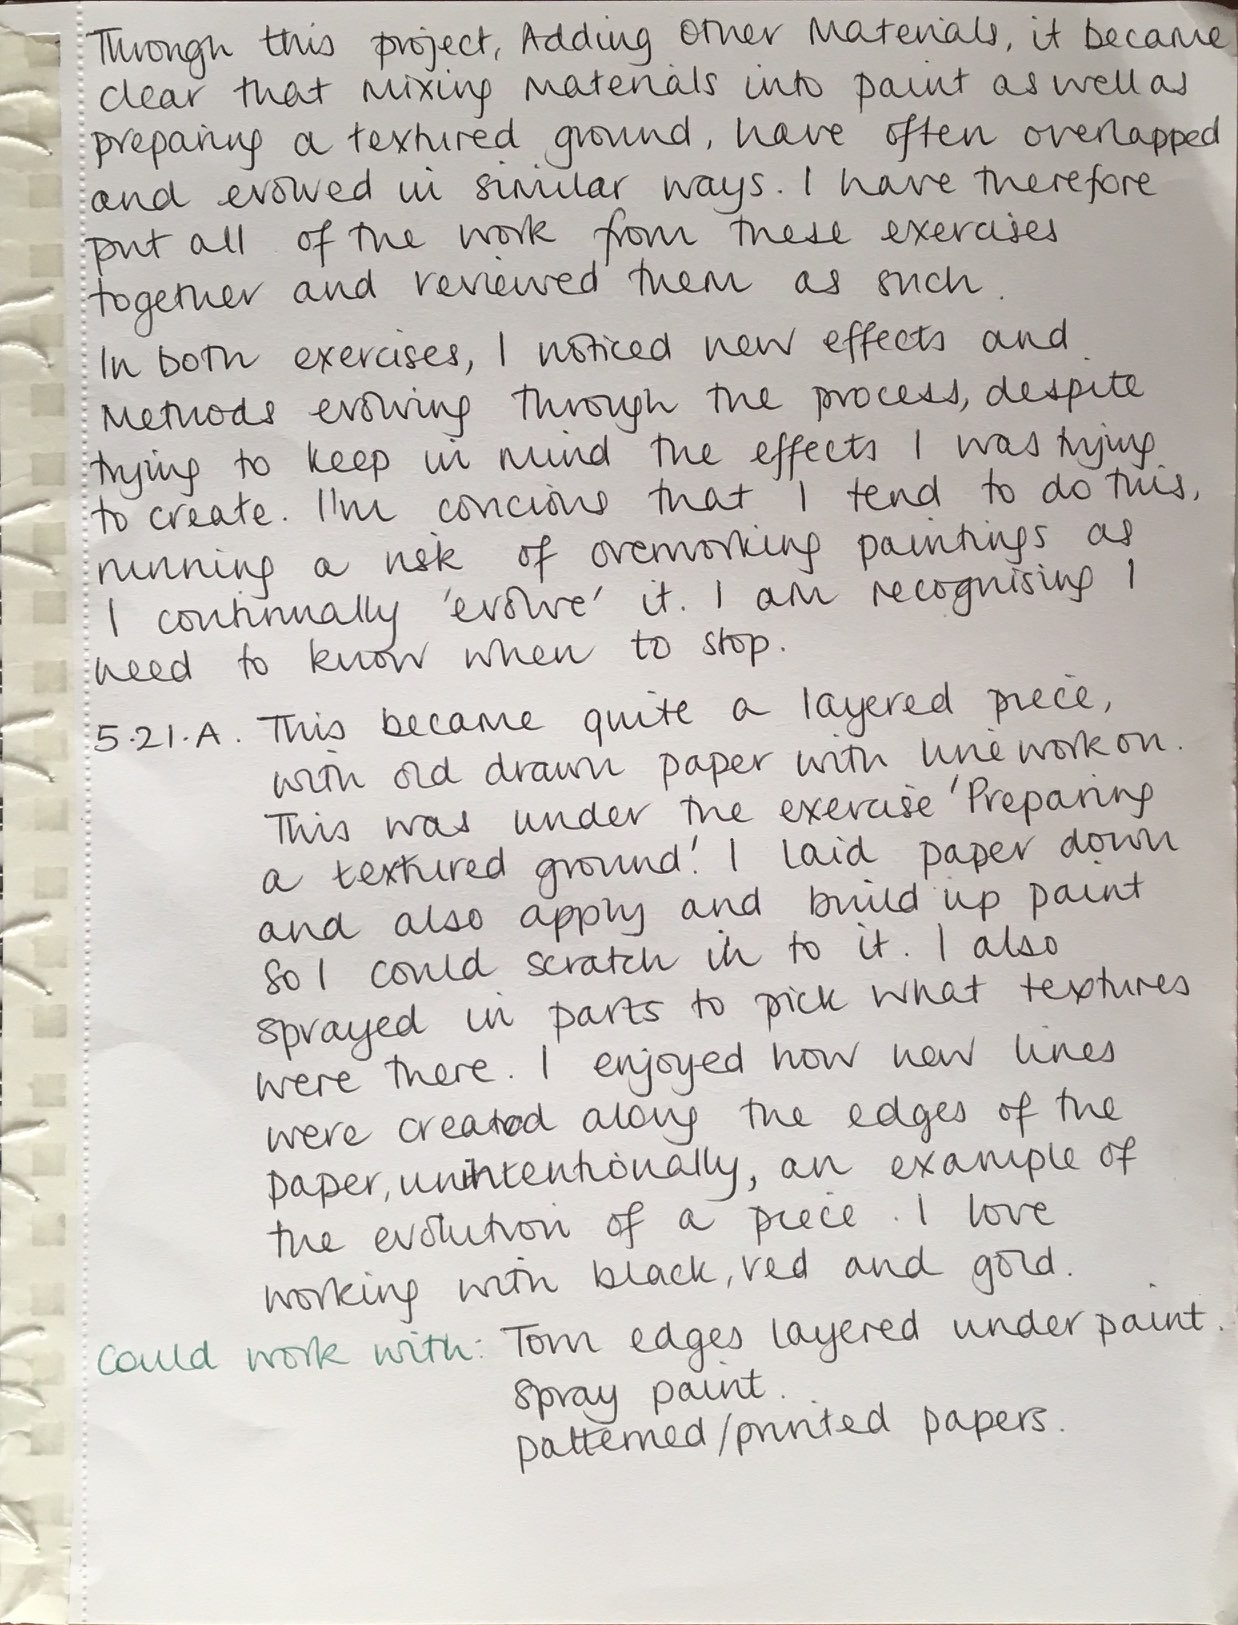 Through this project, Adding Other Materials, it became
clear that mixing materials into paint as well as
preparing a textured ground, have often overlapped
and evolved in similar ways. I have therefore
put all of the work from these exercises
together and reviewed them as such.
In both exercises, I noticed new effects and
methods evolving through the process, despite
trying to keep in mind the effects I was trying
to create. I'm concious that I tend to do this,
running a risk of overworking paintings as
I continually 'evolve' it. I am recognising I
need to know when to stop.
5.21.A. This became quite a layered piece,
with old drawn paper with line work on.
This was under the exercise 'Preparing
a textured ground'. I laid paper down
and also apply and build up paint
so I could scratch in to it. I also
sprayed in parts to pick what textures
were there. I enjoyed how new lines
were created along the edges of the
paper, unintentionally, an example of
the evolution of a piece. I love
working with black, red and gold.
Could work with: Torn edges layered under paint.
Spray paint.
Patterned/printed papers.